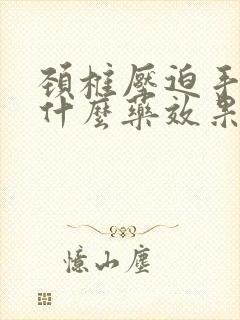 頚椎壓迫手
什麼藥效果
憶山塵